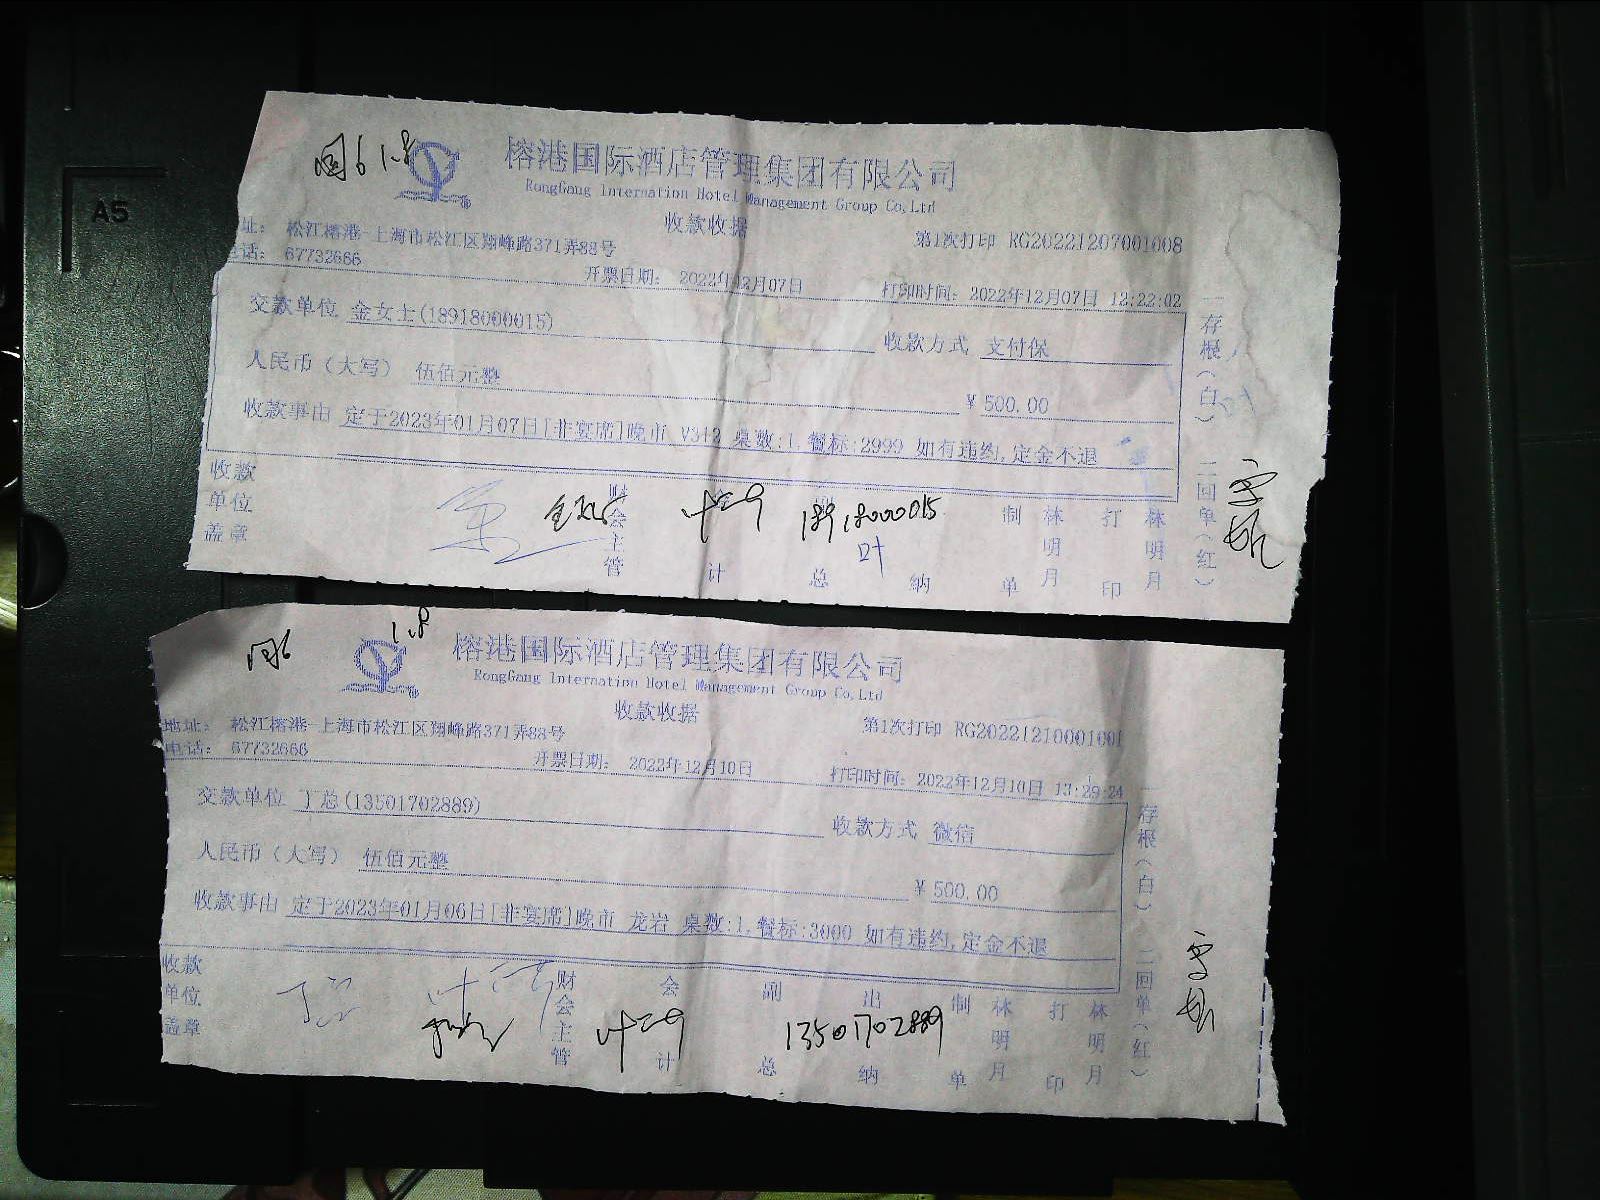 A5
1.8
榕港国际酒店管理集团有限公司
RongGang Internation Hotel Management Group Co,Ltd
收款收据
址: 松江榕港-上海市松江区翔峰路371弄88号
第1次打印 RG20221207001008
电话: 67732666
开票日期: 2022年12月07日
打印时间: 2022年12月07日 12:22:02
交款单位 金女士(18918000015)
收款方式 支付保
人民币(大写) 伍佰元整
¥ 500.00
收款事由 定于2023年01月07日[非宴席]晚市 V3+2 桌数:1,餐标:2999 如有违约,定金不退
一存根(白) 二回单(红)
收款单位盖章
财会主管
会计
副总
出纳
制单
林明月
打印
林明月
18918000015
叶
1.8
榕港国际酒店管理集团有限公司
RongGang Internation Hotel Management Group Co,Ltd
收款收据
地址: 松江榕港-上海市松江区翔峰路371弄88号
第1次打印 RG20221210001001
电话: 67732666
开票日期: 2022年12月10日
打印时间: 2022年12月10日 13:29:24
交款单位 丁总(13501702889)
收款方式 微信
人民币(大写) 伍佰元整
¥ 500.00
收款事由 定于2023年01月06日[非宴席]晚市 龙岩 桌数:1,餐标:3000 如有违约,定金不退
一存根(白) 二回单(红)
收款单位盖章
财会主管
会计
副总
出纳
制单
林明月
打印
林明月
13501702889